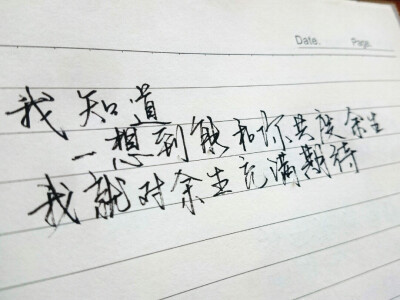 Date. Page.
我知道
一想到能和你共度余生
我就对余生充满期待